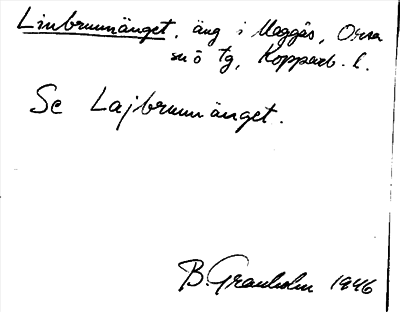 Linbrunnänget, äng i Maggås, Orsa
sn ö tg, Kopparb. l.
Se Lajbrunnänget.
B. Granholm 1946